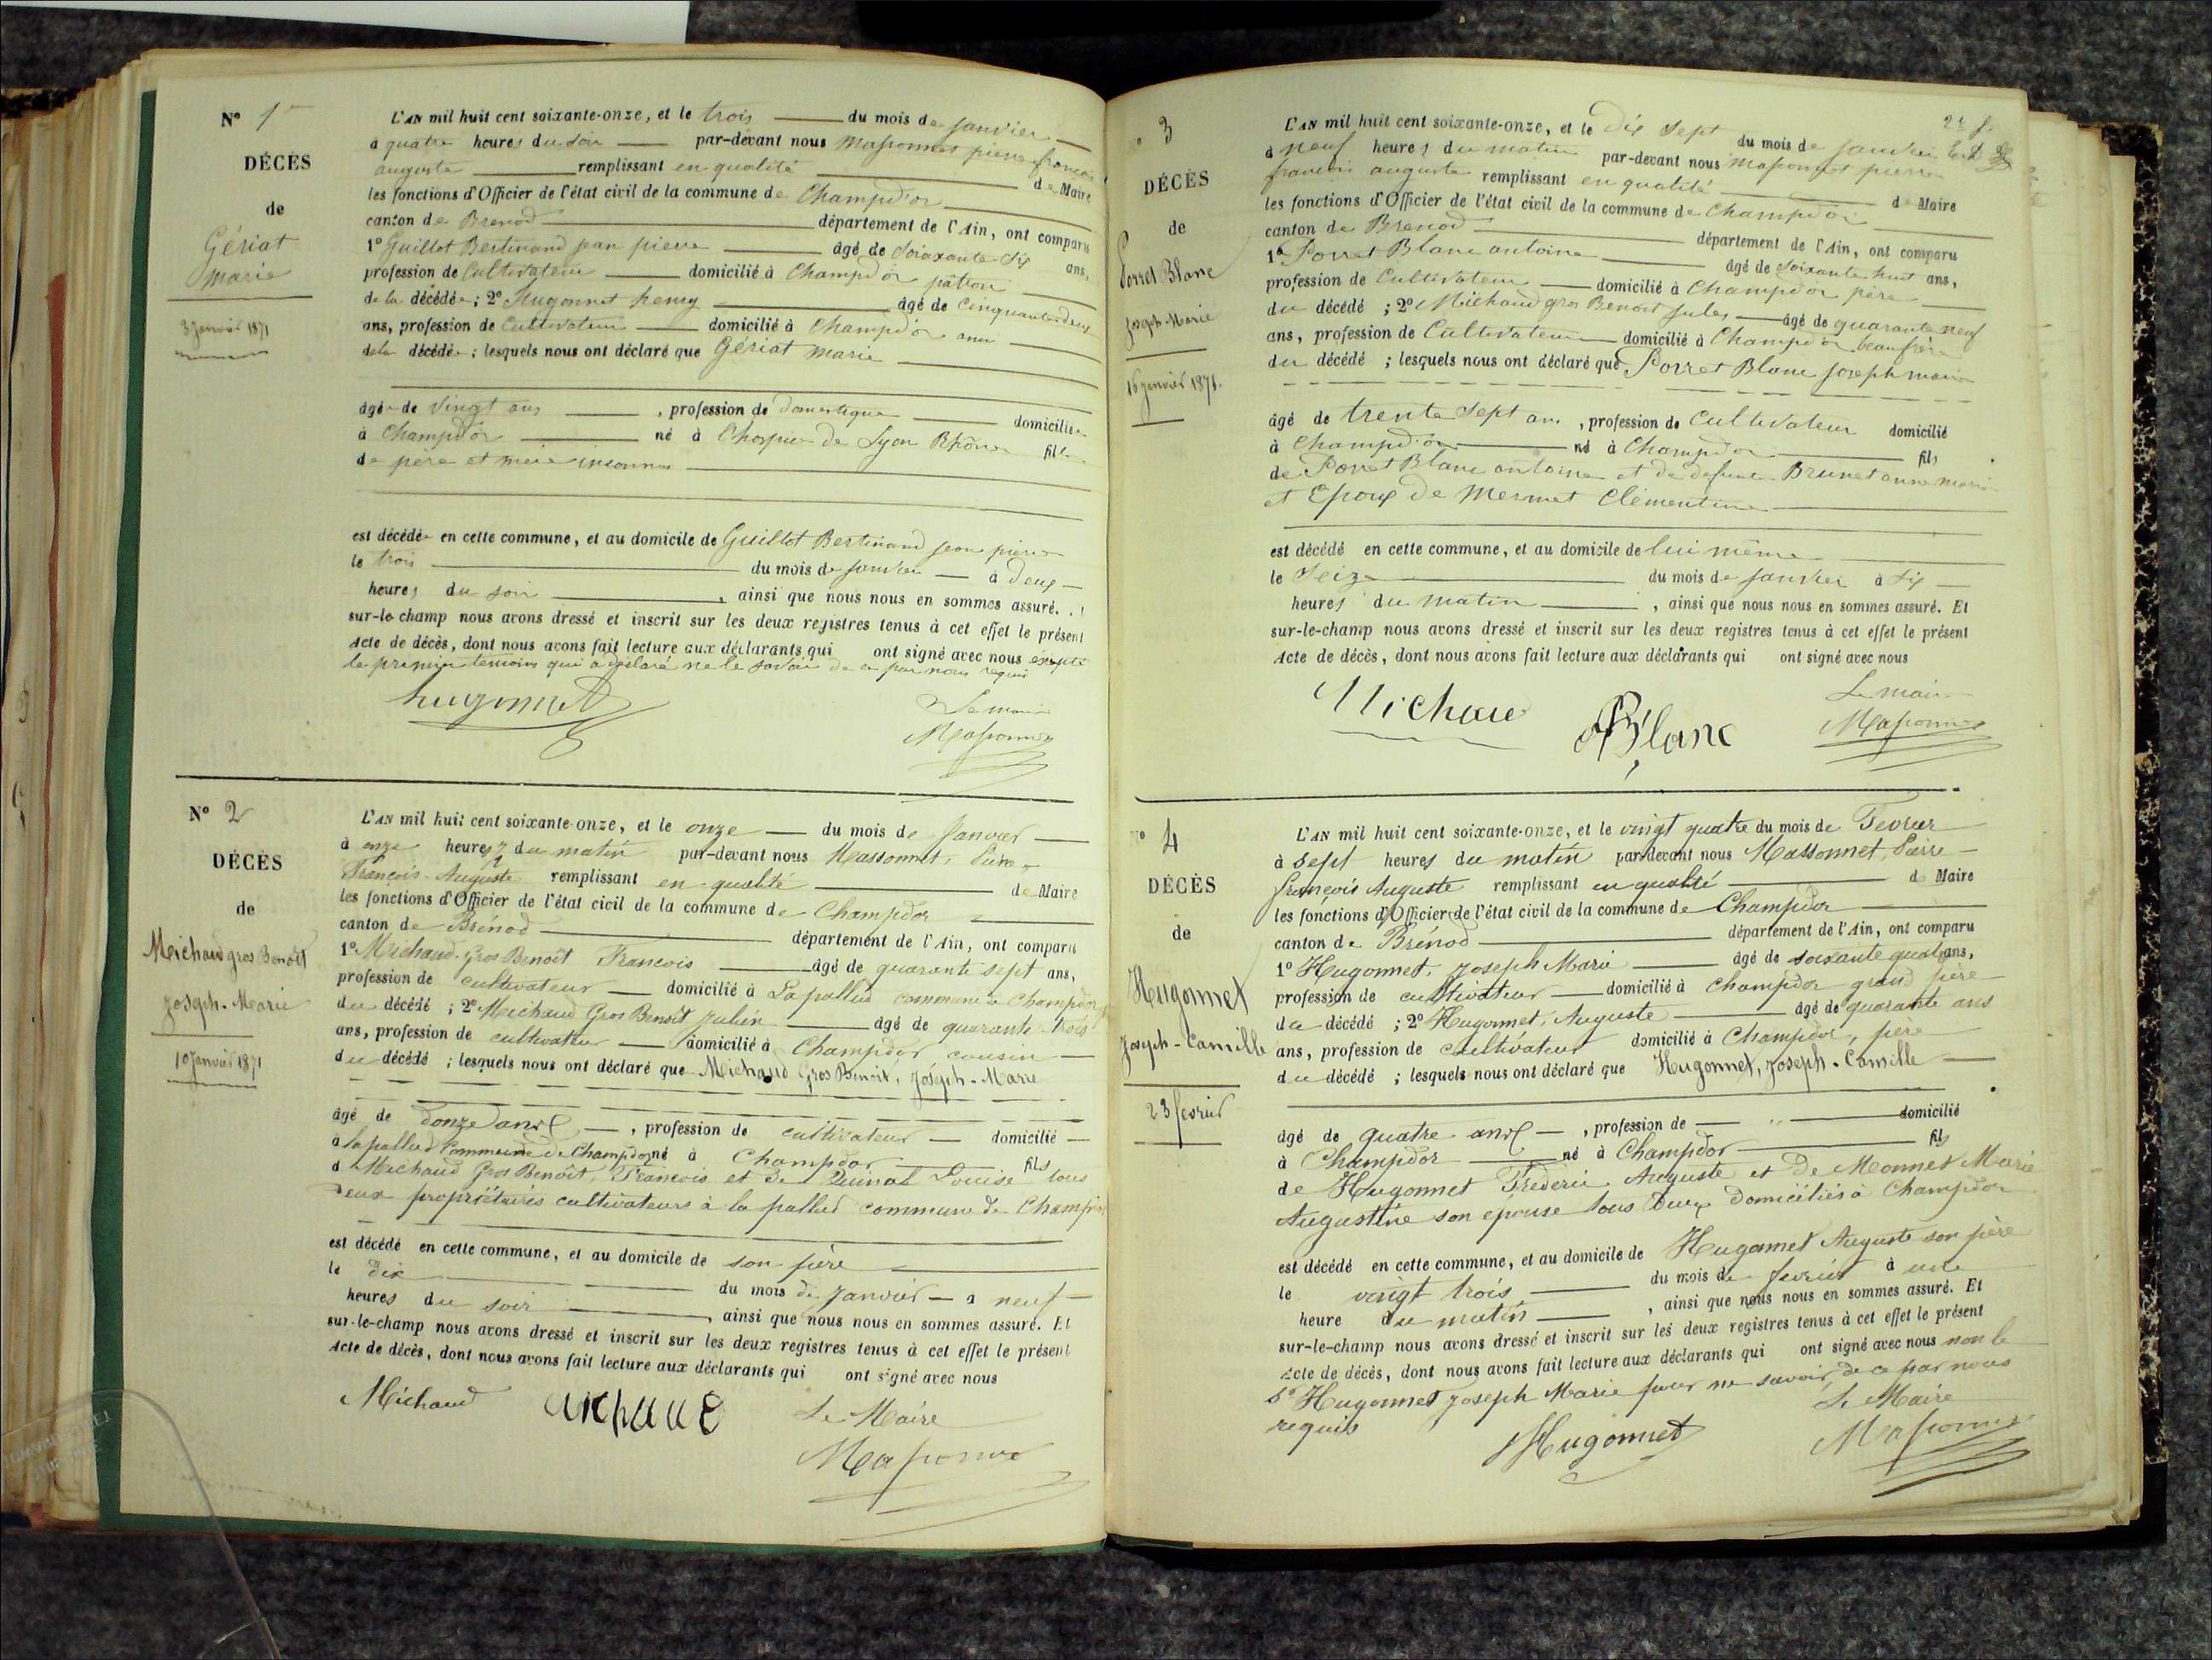 N° 1er
DÉCÈS
de
Gériat
Marie
3 Janvier 1871
L'AN mil huit cent soixante-onze, et le trois du mois de janvier
à quatre heures du soir par-devant nous Massonnet pierre françois
auguste remplissant en qualité de Maire
les fonctions d'Officier de l'état civil de la commune de Champd'or
canton de Brenod département de l'Ain, ont comparu
1° Guillot Bertinand jean pierre âgé de Soixante-Six ans,
profession de Cultivateur domicilié à Champd'or patron
de la décédée ; 2° Hugonnet henry âgé de Cinquante deux
ans, profession de Cultivateur domicilié à Champd'or ami
de la décédée ; lesquels nous ont déclaré que Gériat Marie
âgée de Vingt ans , profession de Domestique domiciliée
à Champd'or né à l'hospice de Lyon Rhône fille
de père et mère inconnus
est décédée en cette commune, et au domicile de Guillot Bertinand jean pierre
le trois du mois de janvier à deux
heures du soir , ainsi que nous nous en sommes assuré.
sur-le-champ nous avons dressé et inscrit sur les deux registres tenus à cet effet le présent
Acte de décès, dont nous avons fait lecture aux déclarants qui ont signé avec nous excepté
le premier temoin qui a déclaré ne le savoir de ce par nous requis
hugonnet
Le maire
Massonnet
N° 2
DÉCÈS
de
Michaud gros Benoit
Joseph-Marie
10 Janvier 1871
L'AN mil huit cent soixante-onze, et le onze du mois de Janvier
à onze heures du matin par-devant nous Massonnet, Pierre
François-Auguste remplissant en qualité de Maire
les fonctions d'Officier de l'état civil de la commune de Champdor
canton de Brénod département de l'Ain, ont comparu
1° Michaud-Gros Benoît Francois âgé de quarante sept ans,
profession de cultivateur domicilié à Lapallud commune de Champdor
du décédé ; 2° Michaud Gros Benoît Julien âgé de quarante-trois
ans, profession de cultivateur domicilié à Champdor cousin
du décédé ; lesquels nous ont déclaré que Michaud Gros Benoit, Joseph-Marie
âgé de Donze ans , profession de cultivateur domicilié
à lapallud Commune de Champdor né à Champdor fils
d Michaud Gros Benoît, Francois et de Quinat Louise tous
deux propriétaires cultivateurs à la pallud commune de Champdor
est décédé en cette commune, et au domicile de son père
le dix du mois de Janvier à neuf
heures du soir , ainsi que nous nous en sommes assuré. Et
sur-le-champ nous avons dressé et inscrit sur les deux registres tenus à cet effet le présent
Acte de décès, dont nous avons fait lecture aux déclarants qui ont signé avec nous
Michaud
Le Maire
Massonnet
3
DÉCÈS
de
Porret Blanc
Joseph-Marie
16 Janvier 1871.
2e f.
L'AN mil huit cent soixante-onze, et le Dix Sept du mois de janvier
à neuf heures du matin par-devant nous Massonnet pierre
francois auguste remplissant en qualité de Maire
les fonctions d'Officier de l'état civil de la commune de Champd'or
canton de Brenod département de l'Ain, ont comparu
1° Porret Blanc antoine âgé de Soixante huit ans,
profession de Cultivateur domicilié à Champd'or père
du décédé ; 2° Michaud gros Benoit jules âgé de quarante neuf
ans, profession de Cultivateur domicilié à Champd'or beaufrère
du décédé ; lesquels nous ont déclaré que Porret Blanc joseph marie
âgé de trente sept ans , profession de Cultivateur domicilié
à Champd'or né à Champd'or fils
de Porret Blanc antoine et de defunte Brunet anne marie
et Epoux de Mermet Clementine
est décédé en cette commune, et au domicile de lui même
le Seize du mois de janvier à Six
heures du matin , ainsi que nous nous en sommes assuré. Et
sur-le-champ nous avons dressé et inscrit sur les deux registres tenus à cet effet le présent
Acte de décès, dont nous avons fait lecture aux déclarants qui ont signé avec nous
Michaud
Blanc
Le maire
Massonnet
4
DÉCÈS
de
Hugonnet
Joseph-Camille
23 fevrier
L'AN mil huit cent soixante-onze, et le vingt quatre du mois de Fevrier
à Sept heures du matin par-devant nous Massonnet, Pierre
françois Auguste remplissant en qualité de Maire
les fonctions d'Officier de l'état civil de la commune de Champdor
canton de Brénod département de l'Ain, ont comparu
1° Hugonnet, Joseph Marie âgé de soixante quatre ans,
profession de cultivateur domicilié à Champdor grand père
du décédé ; 2° Hugonnet, Auguste âgé de quarante ans
ans, profession de cultivateur domicilié à Champdor, père
du décédé ; lesquels nous ont déclaré que Hugonnet, Joseph-Camille
âgé de quatre ans , profession de " domicilié
à Champdor né à Champdor fils
de Hugonnet Frederic Auguste et de Monnet Marie
Augustine son epouse tous Deux domiciliés à Champdor
est décédé en cette commune, et au domicile de Hugonnet Auguste son père
le vingt trois du mois de fevrier à une
heure du matin , ainsi que nous nous en sommes assuré. Et
sur-le-champ nous avons dressé et inscrit sur les deux registres tenus à cet effet le présent
Acte de décès, dont nous avons fait lecture aux déclarants qui ont signé avec nous non le
Sr Hugonnet Joseph Marie pour ne savoir, de ce par nous
requis
Hugonnet
Le Maire
Massonnet